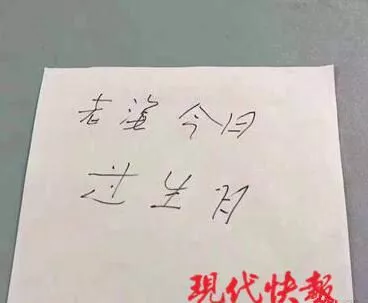 老 今日
过生日
现代快報